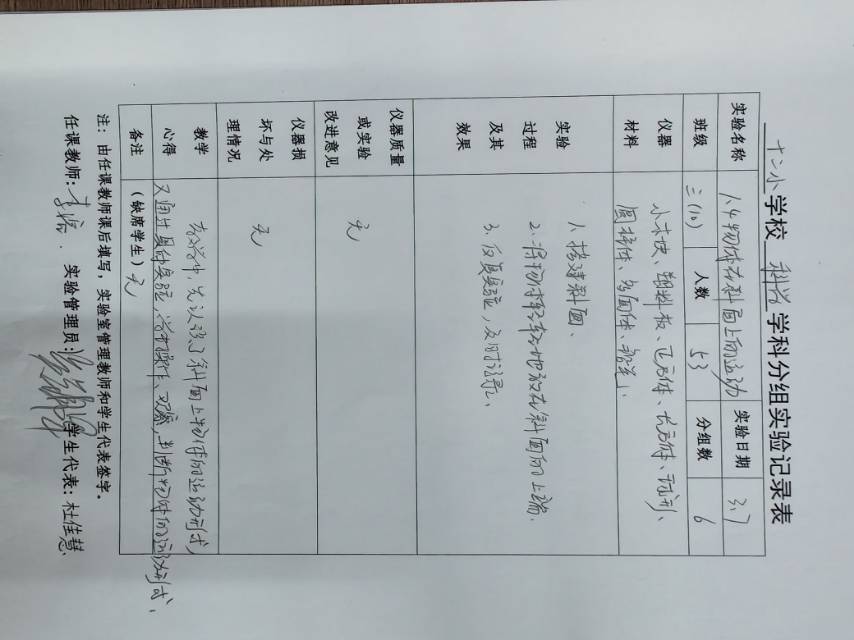 十二小学校 科学 学科分组实验记录表
实验名称 1.4物体在斜面上的运动 实验日期 3.7
班级 三(10) 人数 53 分组数 6
仪器材料 小木块、塑料板、正方体、长方体、球形、
圆柱体、多面体、
实验过程及其效果 1、搭建斜面、
2、将物体轻轻地放在斜面的上端、
3、反复实验，及时记录、
仪器质量或实验改进意见 无
仪器损坏与处理情况 无
教学心得 教学中，先认识了斜面上物体的运动形式，
又通过具体实验，学生操作、观察，判断物体的运动形式、
备注 （缺席学生）无
注：由任课教师课后填写，实验室管理教师和学生代表签字。
任课教师：李 实验管理员： 学生代表：杜佳慧